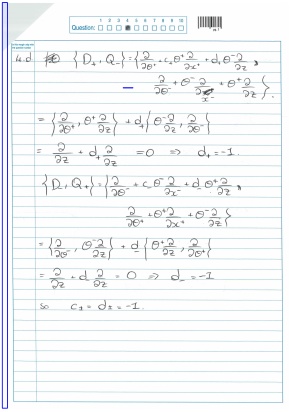 Question: 1 2 3 4 5 6 7 8 9 10
4.d {D₊, Q₋} = {∂/∂θ⁺ + c₊θ⁺ ∂/∂x⁺ + d₊θ⁻ ∂/∂z,
∂/∂θ⁻ + θ⁻ ∂/∂x⁻ + θ⁺ ∂/∂z}.
= {∂/∂θ⁺, θ⁺ ∂/∂z} + d₊{θ⁻ ∂/∂z, ∂/∂θ⁻}
= ∂/∂z + d₊ ∂/∂z = 0 ⇒ d₊ = -1.
{D₋, Q₊} = {∂/∂θ⁻ + c₋θ⁻ ∂/∂x⁻ + d₋θ⁺ ∂/∂z,
∂/∂θ⁺ + θ⁺ ∂/∂x⁺ + θ⁻ ∂/∂z}
= {∂/∂θ⁻, θ⁻ ∂/∂z} + d₋{θ⁺ ∂/∂z, ∂/∂θ⁺}
= ∂/∂z + d₋ ∂/∂z = 0 ⇒ d₋ = -1
so c± = d± = -1.